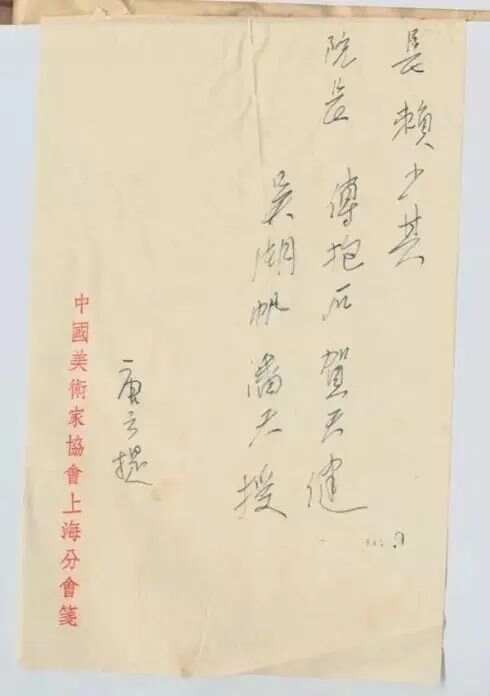 長 賴少其
院長 傅抱石 賀天健
吳湖帆 潘天授
唐云提
中國美術家協會上海分會箋